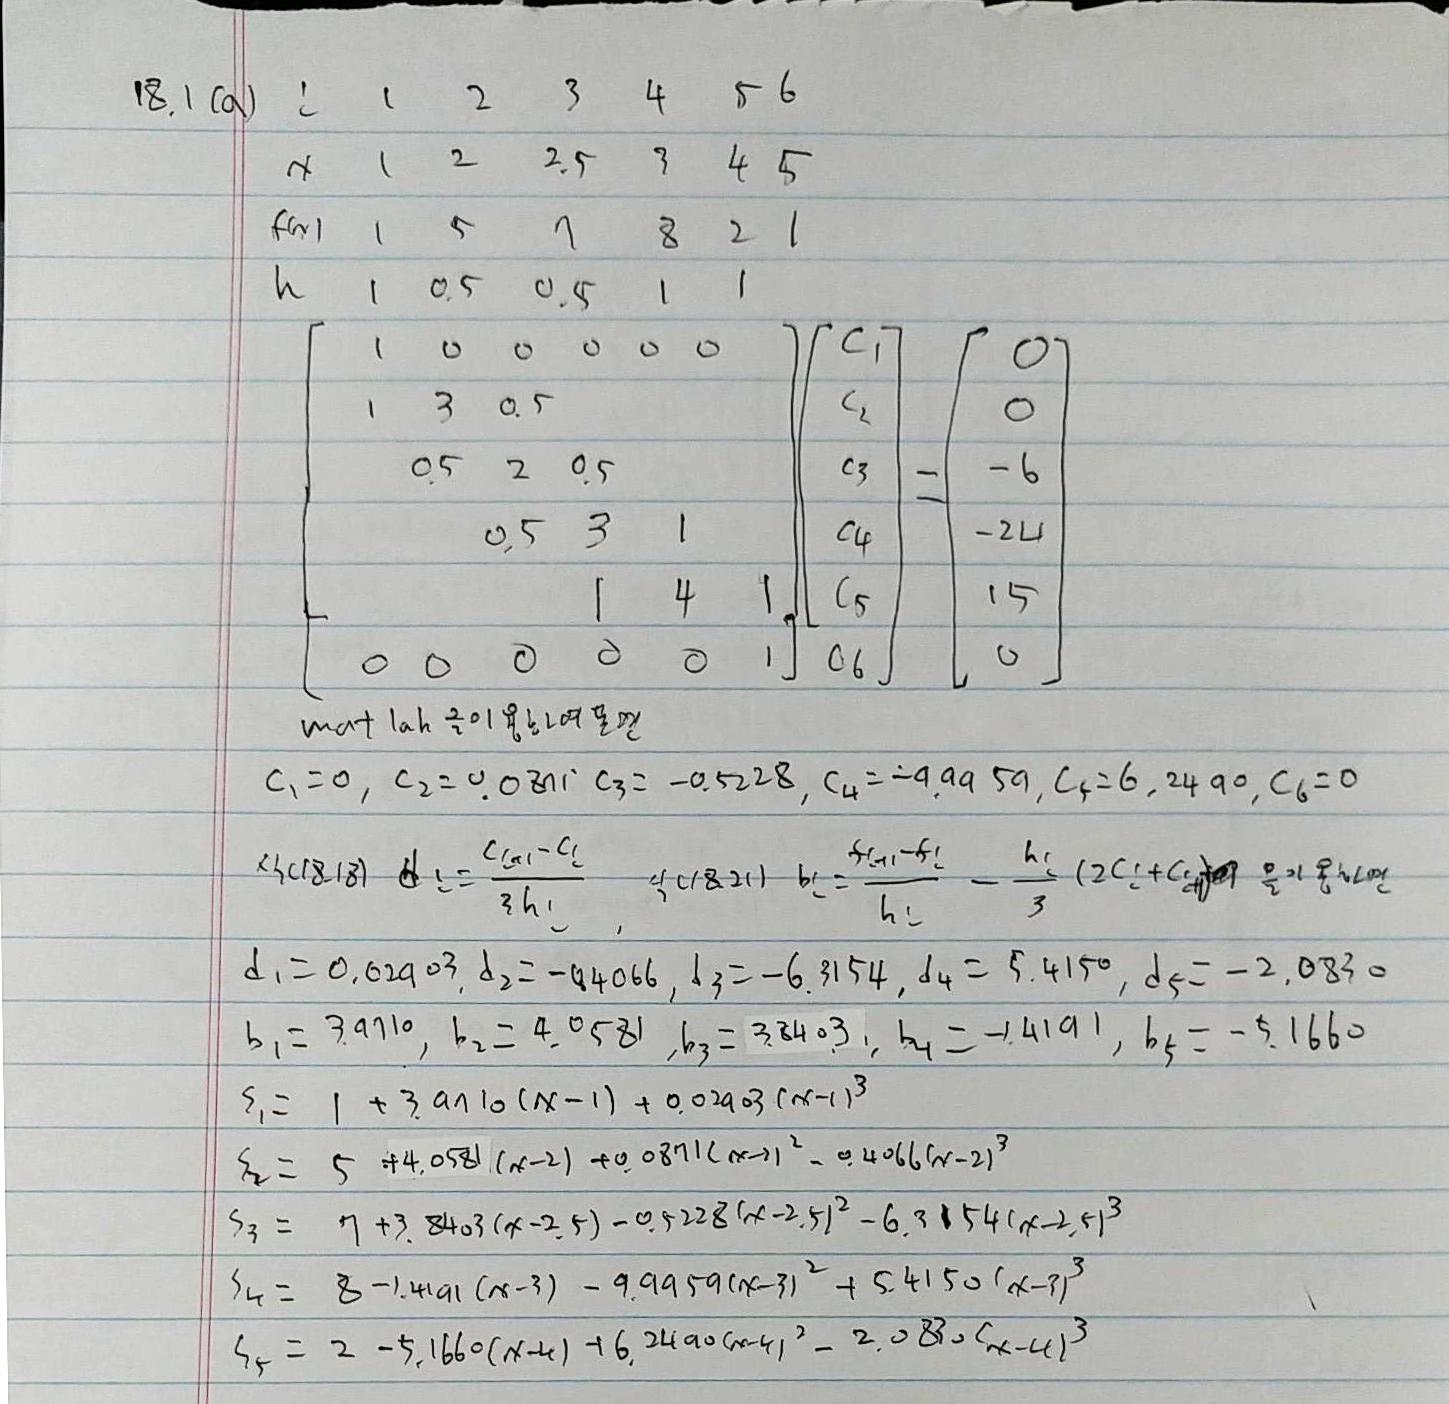 18.1 (a) i 1 2 3 4 5 6
x 1 2 2.5 3 4 5
f(x) 1 5 7 8 2 1
h 1 0.5 0.5 1 1
1 0 0 0 0 0 C1 0
1 3 0.5 C2 0
0.5 2 0.5 C3 = -6
0.5 3 1 C4 -24
1 4 1 C5 15
0 0 0 0 0 1 C6 0
matlab 을 이용하여 풀면
C1=0, C2=0.0871 C3= -0.5228, C4=-9.9959, C5=6.2490, C6=0
식(18.18) di = (Ci+1-Ci)/(3hi), 식(18.21) bi = (fi+1-fi)/hi - hi/3 (2Ci+Ci+1) 을 이용하면
d1=0.02903, d2=-0.4066, d3=-6.3154, d4= 5.4150, d5= -2.0830
b1= 3.9710, b2= 4.0581, b3= 3.8403, b4= -1.4191, b5= -5.1660
S1= 1 + 3.9710(x-1) + 0.02903(x-1)^3
S2= 5 +4.0581(x-2) +0.0871(x-2)^2 - 0.4066(x-2)^3
S3= 7 +3.8403(x-2.5) -0.5228(x-2.5)^2 -6.3154(x-2.5)^3
S4= 8 -1.4191(x-3) -9.9959(x-3)^2 + 5.4150(x-3)^3
S5= 2 -5.1660(x-4) +6.2490(x-4)^2 - 2.0830(x-4)^3